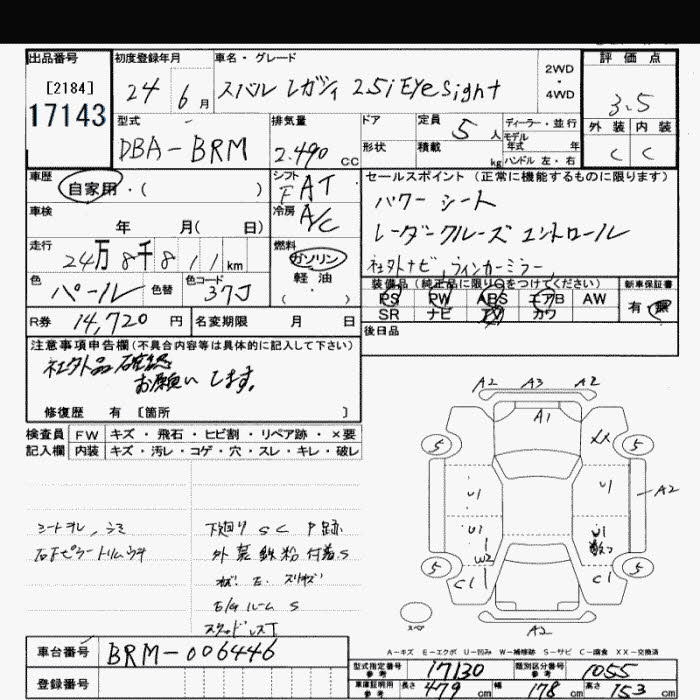 出品番号 初度登録年月 車名・グレード 評価点
[2184] 24 年 6月 スバル レガシィ 2.5i EyeSight 2WD・4WD 3.5
17143
型式 排気量 ドア 定員 5人 ディーラー・並行 外装 内装
DBA-BRM 2.490cc 形状 積載 kg モデル年式 年 C C
ハンドル 左・右
車歴 シフト セールスポイント(正常に機能するものに限ります)
自家用・( ) FAT パワーシート
車検 年 月( 日) 冷房 A/C レーダークルーズコントロール
走行 24万8千811km 燃料 ガソリン 軽油 ( ) 社外ナビ、ウィンカーミラー
色 パール 色替 色コード 37J
装備品(純正品に限り○をつけてください) 新車保証書
PS PW ABS エアB AW 有 無
SR ナビ カワ
R券 14,720円 名変期限 月 日 後日品
注意事項申告欄(不具合内容等は具体的に記入して下さい)
社外品確認
お願いします。
修復歴 有 [箇所 ]
検査員 FW キズ・飛石・ヒビ割・リペア跡・×要
記入欄 内装 キズ・汚レ・コゲ・穴・スレ・キレ・破レ
A2 A3 A2
A1
XX
5 5
U1 U1 A2
U1 U1
W2
5 5
C1 C1
スペア A2
シートヨレ、シミ 下廻り SC P跡
外装鉄粉付着S
ルーム S
スタッドレスT
A-キズ E-エクボ U-凹み W-補修跡 S-サビ C-腐食 XX-交換済
車台番号 BRM-006446
登録番号
型式指定番号 参考 17130 類別区分番号 参考 1055
車庫証明用 参考 長さ 479cm 幅 178cm 高さ 153cm